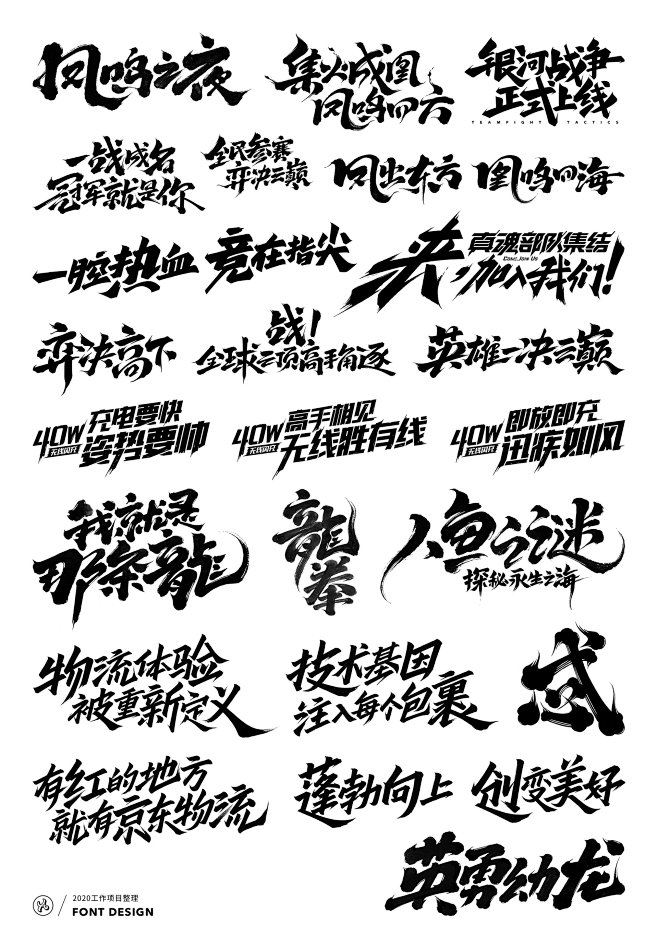 凤鸣之夜
集火成凰
凤鸣四方
银河战争
正式上线
TEAMFIGHT TACTICS
一战成名
冠军就是你
全民参赛
弈决云巅
凤出东方
凰鸣四海
一腔热血
竞在指尖
真魂部队集结
COME,JOIN US
加入我们!
弈决高下
战!
全球云顶高手角逐
英雄一决云巅
40W
无线闪充
充电要快
姿势要帅
40W
无线闪充
高手相见
无线胜有线
40W
无线闪充
即放即充
迅疾如风
我就是
那条龍
龍拳
人鱼之谜
探秘永生之海
物流体验
被重新定义
技术基因
注入每个包裹
有红的地方
就有京东物流
蓬勃向上
创变美好
英勇幼龙
2020工作项目整理
FONT DESIGN